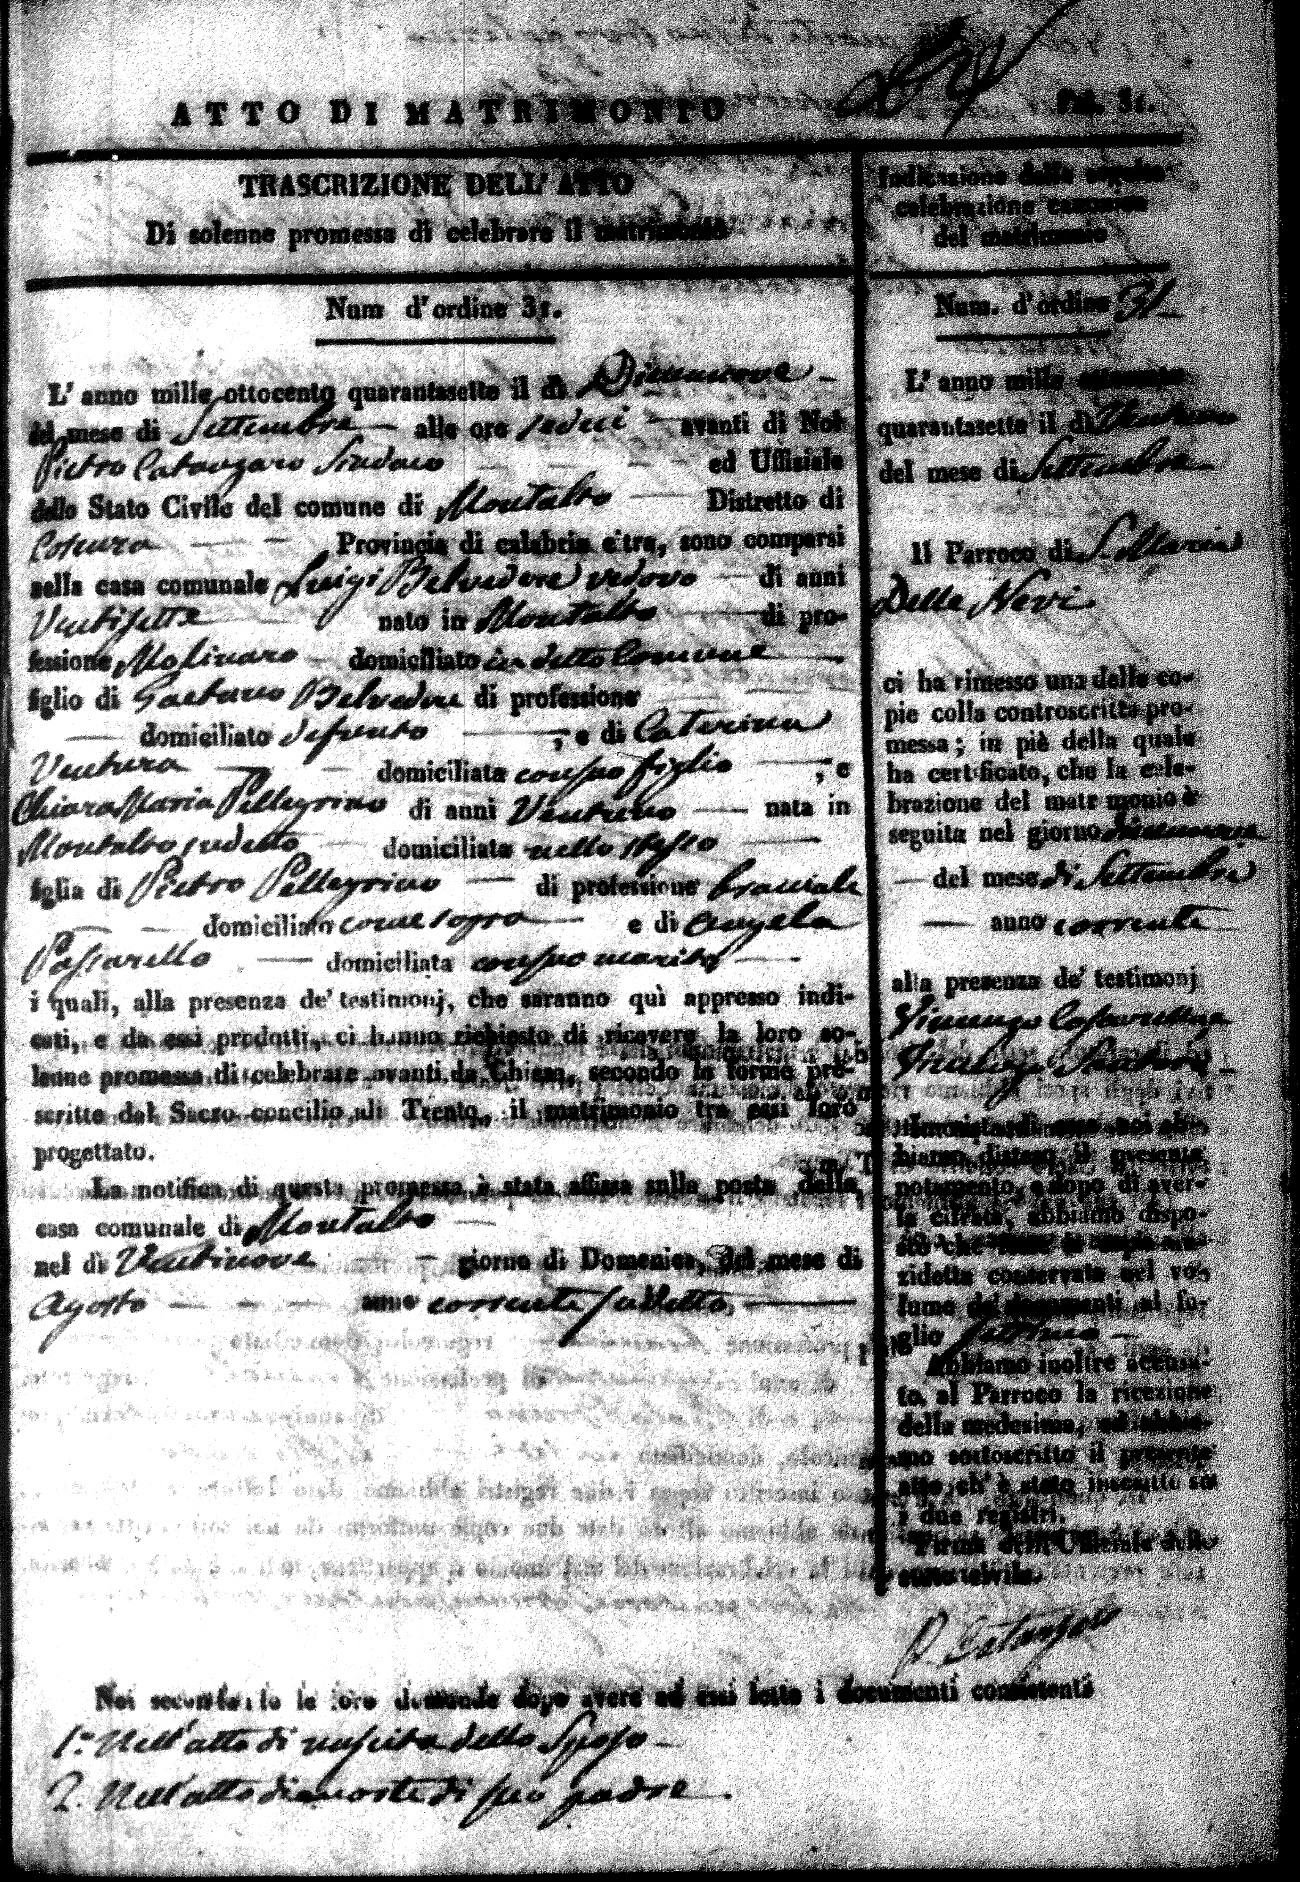 ATTO DI MATRIMONIO
Pag. 31.
TRASCRIZIONE DELL' ATTO
Di solenne promessa di celebrare il matrimonio
Num d'ordine 31.
L' anno mille ottocento quarantasette il dì Diecinnove
del mese di Settembre alle ore sedici avanti di Noi
Pietro Catanzaro Sindaco ed Uffiziale
dello Stato Civile del comune di Montalto Distretto di
Cosenza Provincia di calabria citra, sono comparsi
nella casa comunale Luigi Belvedere vedovo di anni
Ventisette nato in Montalto di pro-
fessione Molinaro domiciliato in detto Comune
figlio di Gaetano Belvedere di professione
domiciliato defunto , e di Caterina
Ventura domiciliata con suo figlio , e
Chiara Maria Pellegrino di anni Ventuno nata in
Montalto sudetto domiciliata nello stesso
figlia di Pietro Pellegrino di professione bracciale
domiciliato come sopra e di Angela
Passarello domiciliata con suo marito
i quali, alla presenza de' testimonj, che saranno quì appresso indi-
cati, e da essi prodotti, ci hanno richiesto di ricevere la loro so-
lenne promessa di celebrare avanti da Chiesa, secondo le forme pre-
scritte dal Sacro concilio di Trento, il matrimonio tra essi loro
progettato.
La notifica di questa promessa è stata affissa sulla porta della
casa comunale di Montalto
nel dì Ventinove giorno di Domenica, del mese di
Agosto anno corrente sudetto,
Indicazione della seguita
celebrazione canonica
del matrimonio
Num. d'ordine 31
L' anno mille ottocento
quarantasette il dì Ventuno
del mese di Settembre
Il Parroco di S. Maria
Della Nevi
ci ha rimesso una delle co-
pie colla controscritta pro-
messa; in piè della quale
ha certificato, che la cele-
brazione del matrimonio è
seguita nel giorno diecinnove
del mese di Settembre
anno corrente
alla presenza de' testimonj
Vincenzo
In vista di essa noi ab-
biamo disteso il presente
notamento, e dopo di aver-
la cifrata, abbiamo dispo-
sto che fosse la copia su-
zidetta conservata nel vo-
lume de' documenti al fo-
glio
Abbiamo inoltre accusa-
to al Parroco la ricezione
della medesima, ed abbia-
mo sottoscritto il presente
atto, ch' è stato inscritto su
i due registri.
Firma dell'Uffiziale dello
stato civile.
P. Catanzaro
Noi secondato le loro domande dopo avere ad essi letto i documenti consistenti
1.° Nell'atto di nascita dello Sposo
2. Nell'atto di morte di suo padre.